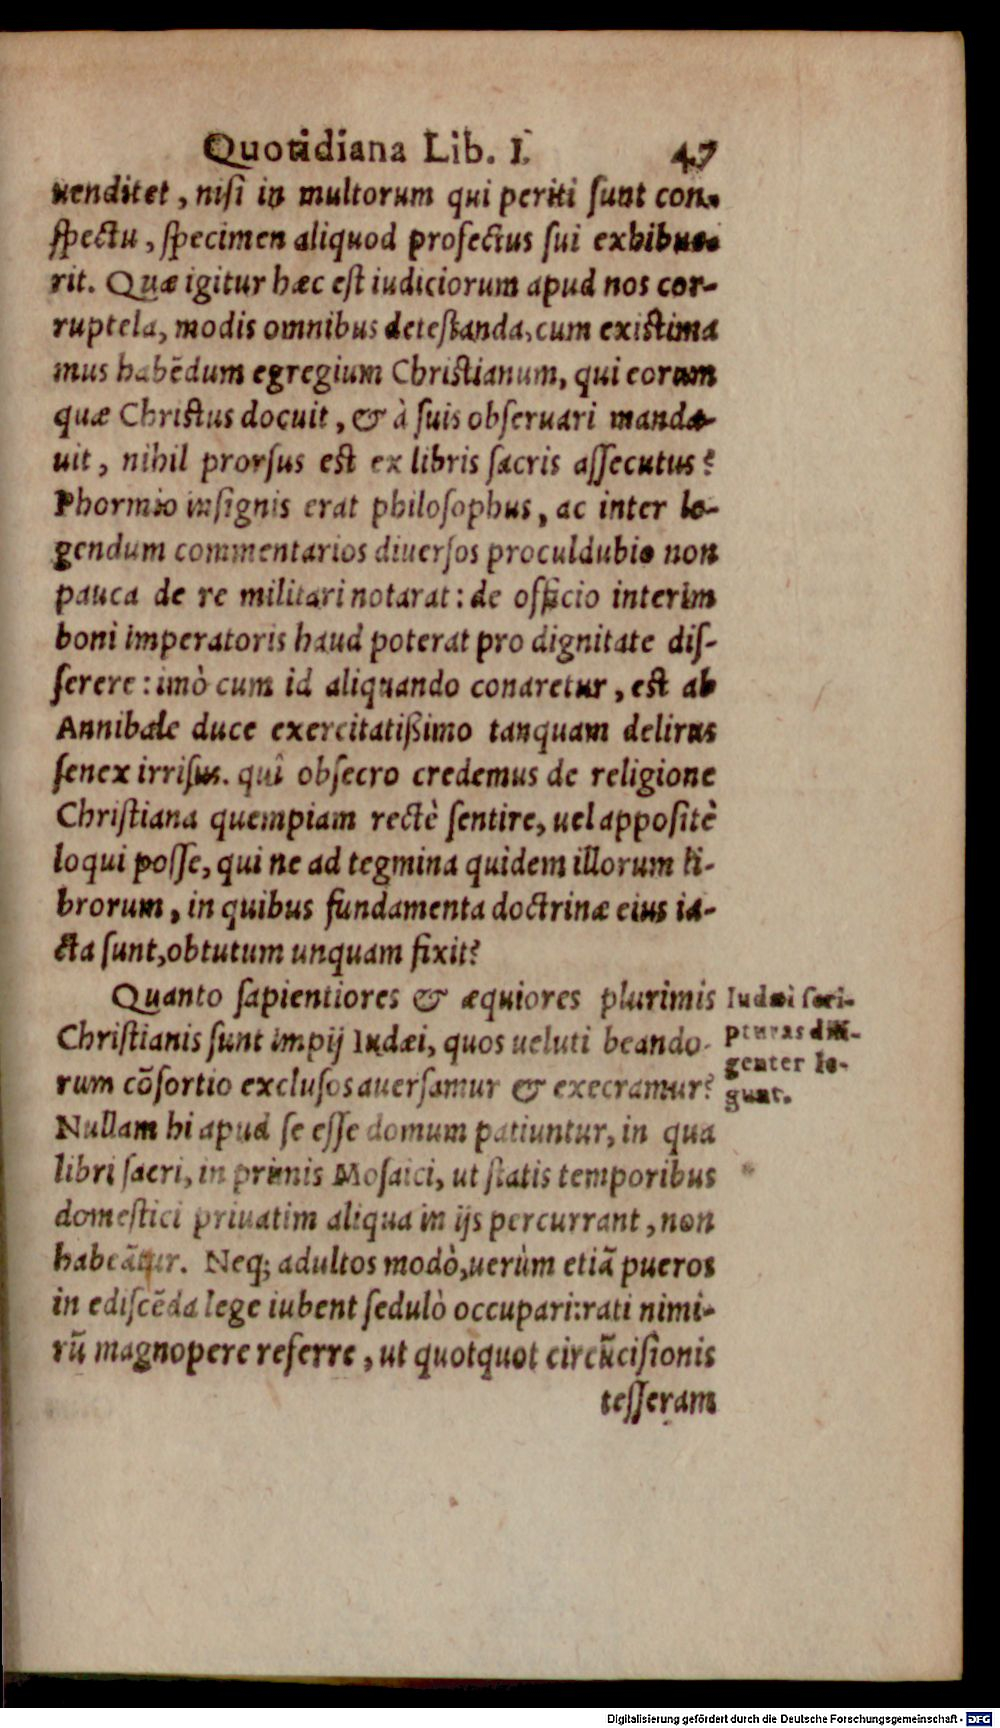 Quotidiana Lib. I. 47
uenditet, nisi in multorum qui periti sunt con-
spectu, specimen aliquod profectus sui exhibue-
rit. Quæ igitur hæc est iudiciorum apud nos cor-
ruptela, modis omnibus detestanda, cum existima
mus habēdum egregium Christianum, qui eorum
quæ Christus docuit, & à suis obseruari manda-
uit, nihil prorsus est ex libris sacris assecutus?
Phormio insignis erat philosophus, ac inter le-
gendum commentarios diuersos proculdubio non
pauca de re militari notarat: de officio interim
boni imperatoris haud poterat pro dignitate dis-
serere: imò cum id aliquando conaretur, est ab
Annibale duce exercitatißimo tanquam delirus
senex irrisus. qui obsecro credemus de religione
Christiana quempiam rectè sentire, uel appositè
loqui posse, qui ne ad tegmina quidem illorum li-
brorum, in quibus fundamenta doctrinæ eius ia-
cta sunt, obtutum unquam fixit?
Quanto sapientiores & æquiores plurimis
Christianis sunt impij Iudæi, quos ueluti beando-
rum cōsortio exclusos auersamur & execramur?
Nullam hi apud se esse domum patiuntur, in qua
libri sacri, in primis Mosaici, ut statis temporibus
domestici priuatim aliqua in ijs percurrant, non
habeātur. Neq; adultos modò, uerùm etiā pueros
in ediscēda lege iubent sedulò occupari: rati nimi-
rū magnopere referre, ut quotquot circūcisionis
tesseram
Iudæi scri-
pturas dili-
genter le-
gunt.
Digitalisierung gefördert durch die Deutsche Forschungsgemeinschaft - DFG